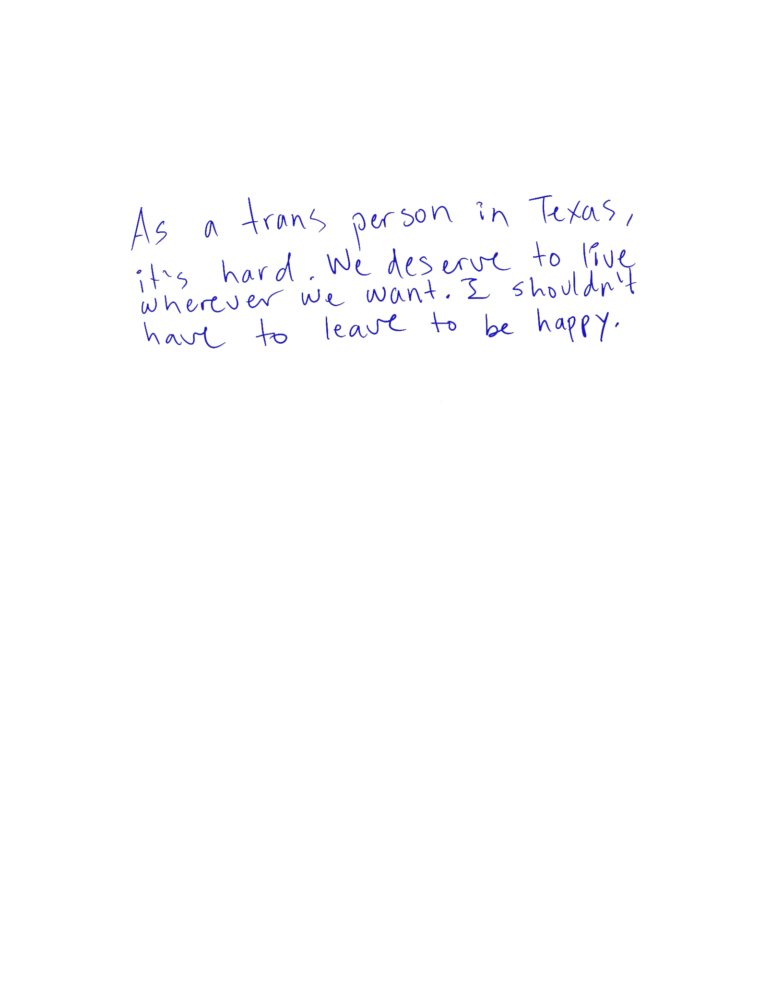 As a trans person in Texas,
it's hard. We deserve to live
wherever we want. I shouldn't
have to leave to be happy.